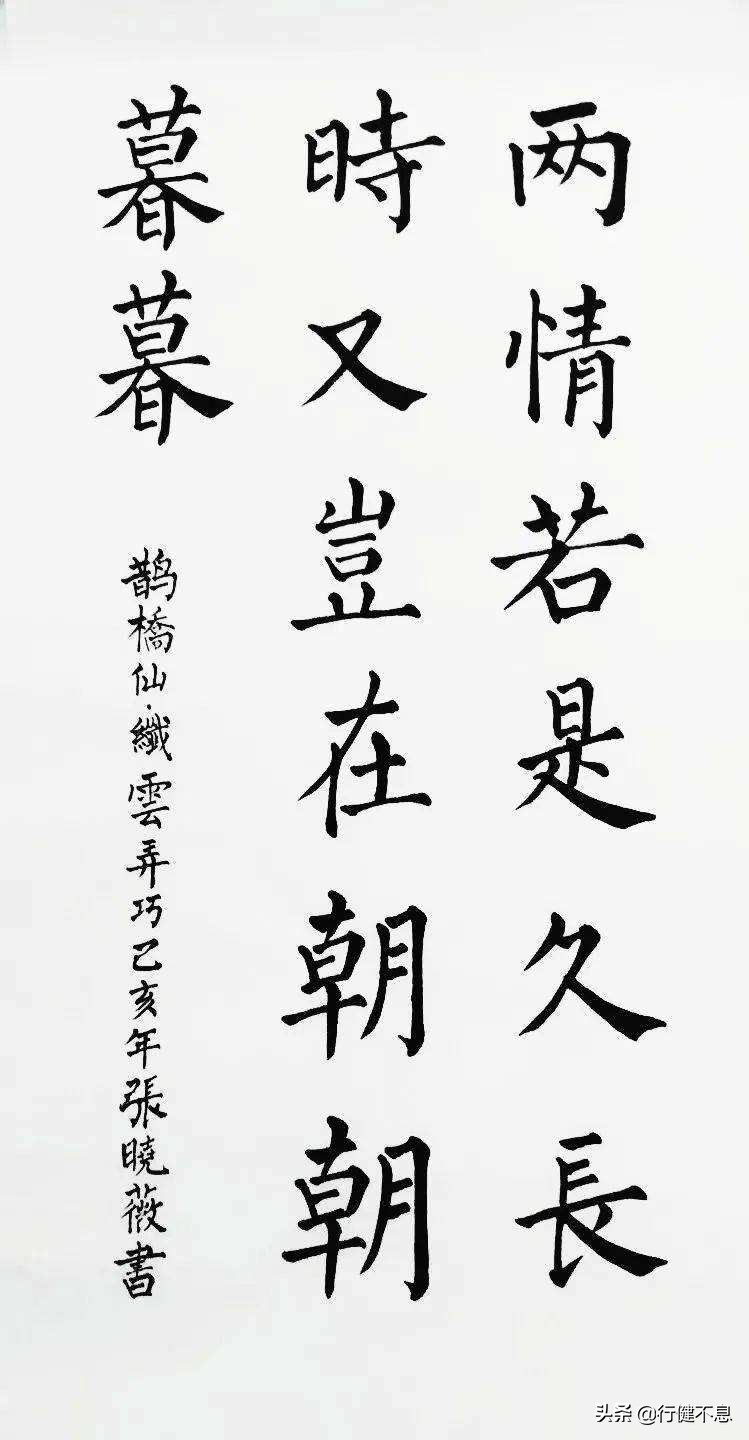 两情若是久長
時又豈在朝朝
暮暮
鹊橋仙·纖雲弄巧己亥年張曉薇書
头条 @行健不息